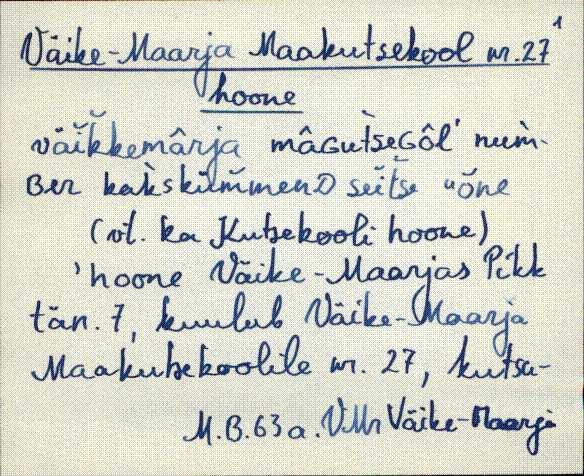 1
Väike-Maarja Maakutsekool nr. 27
hoone
väĭkkemârja mâGutseGôl' num̀-
Ber kaksküm̆menD seĭtse "ŏne
(vt. ka Kutsekooli hoone)
'hoone Väike-Maarjas Pikk
tän. 7, kuulub Väike-Maarja
Maakutsekoolile nr. 27, kutsu-
M.B. 63 a. VMr Väike-Maarja